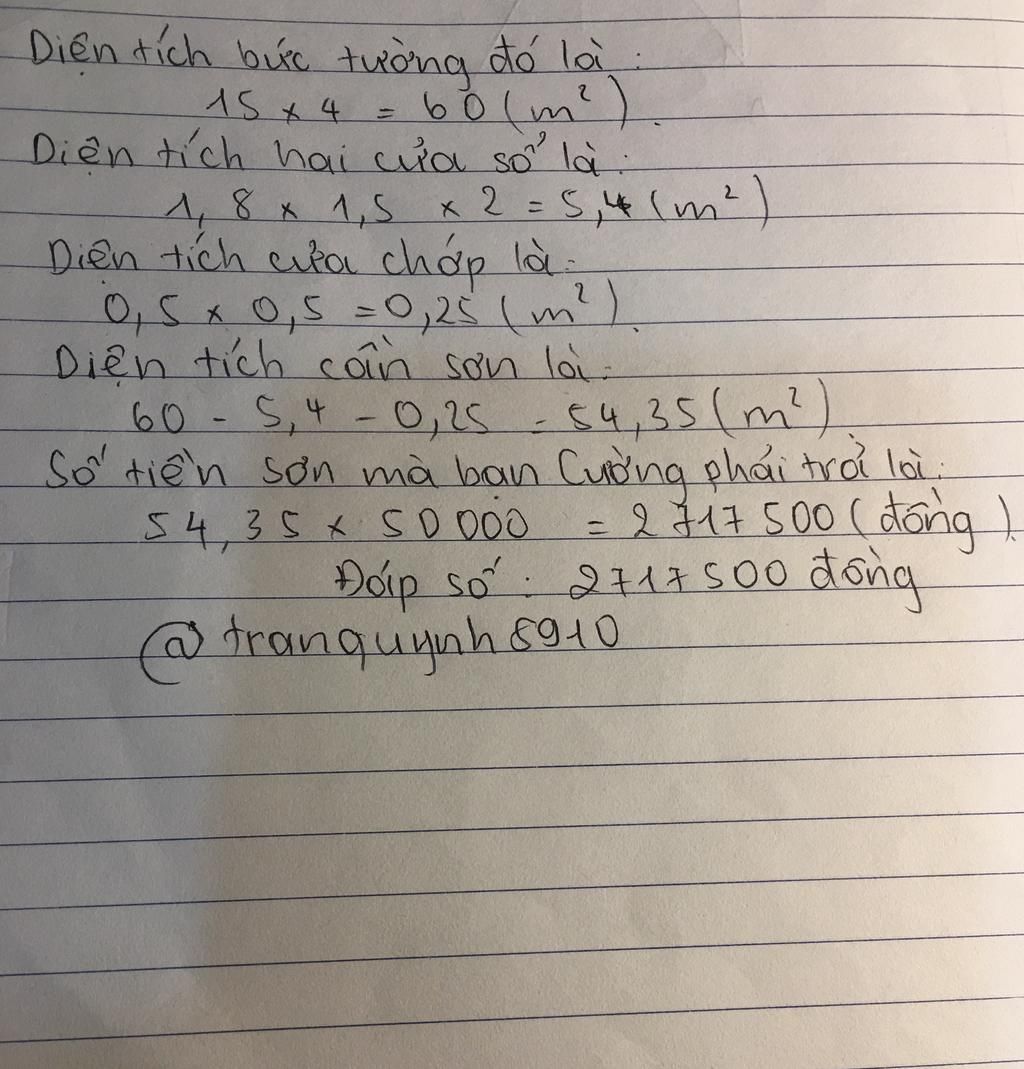 Diện tích bức tường đó là :
15 x 4 = 60 (m²).
Diện tích hai cửa sổ là :
1,8 x 1,5 x 2 = 5,4 (m²)
Diện tích cửa chớp là :
0,5 x 0,5 = 0,25 (m²).
Diện tích cần sơn là :
60 - 5,4 - 0,25 = 54,35 (m²)
Số tiền sơn mà bạn Cường phải trả là :
54,35 x 50 000 = 2 717 500 (đồng).
Đáp số : 2 717 500 đồng
@tranquynh5910